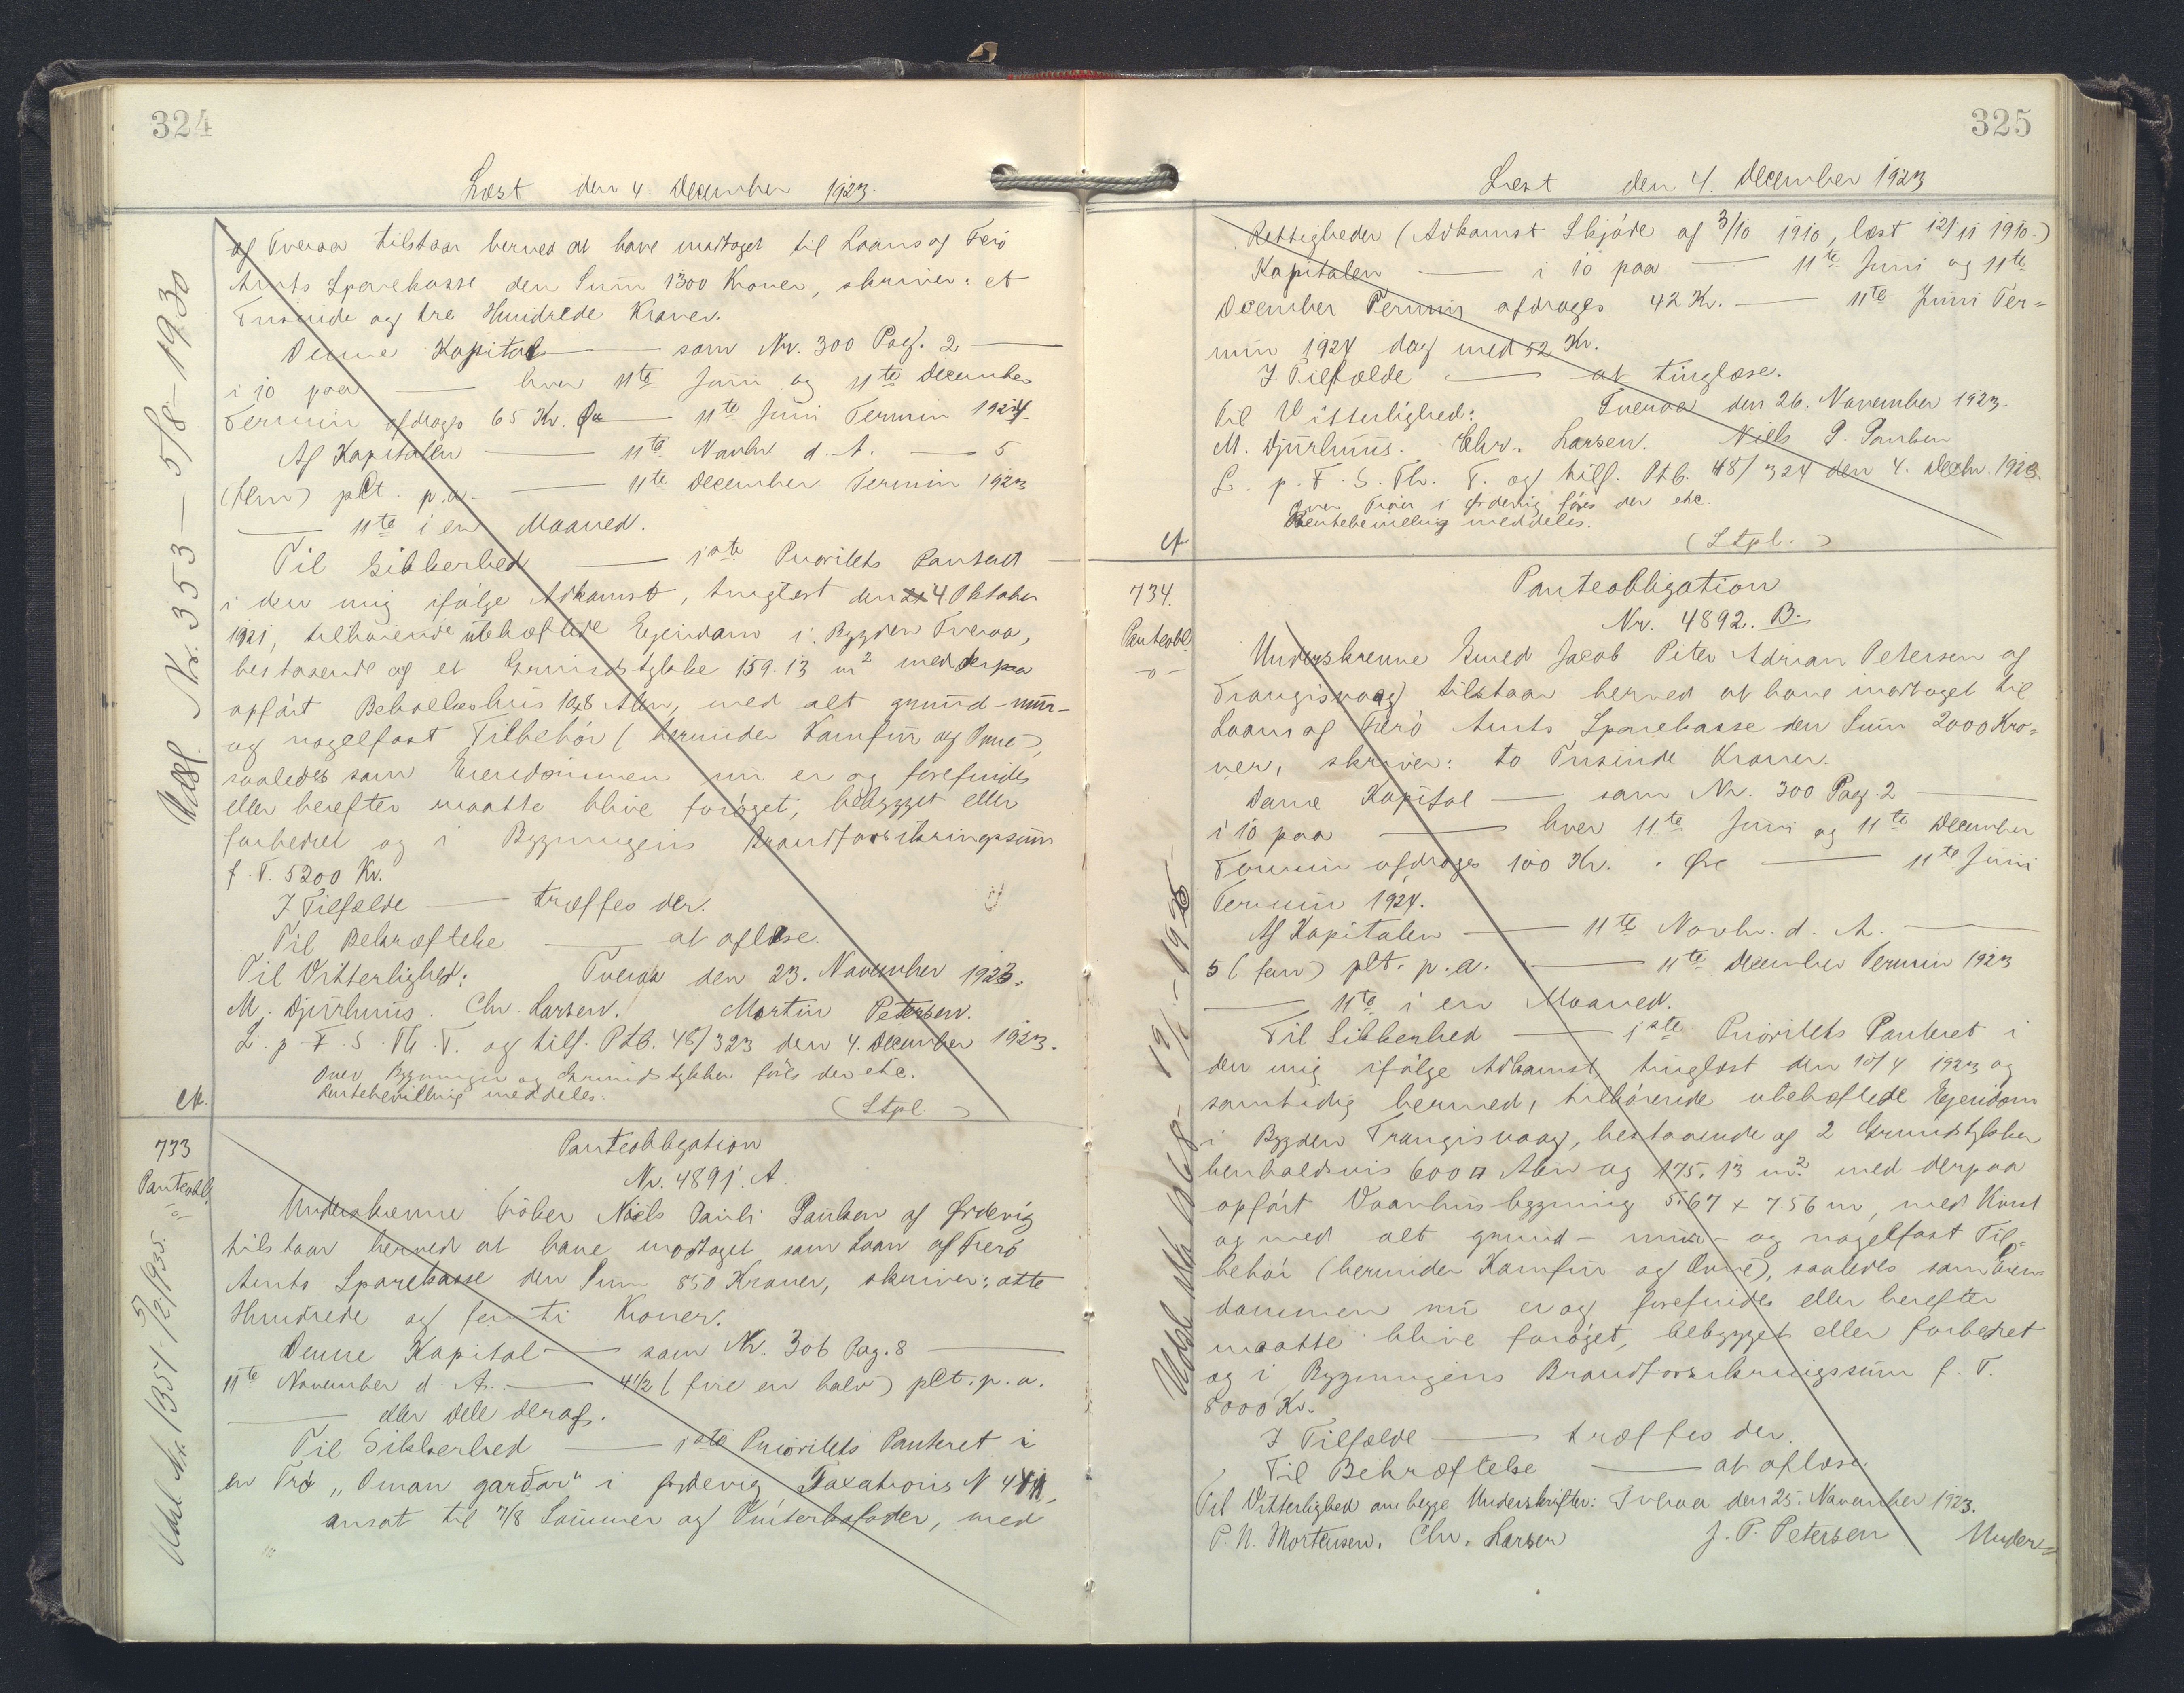 324
Læst den 4. December 1923.
af Tveraa tilstaar herved at have modtaget til Laans af Færö
Amts Sparekasse den Sum 1300 Kroner, skriver: et
Tusinde og tre Hundrede Kroner.
Denne Kapital — som Nr. 300 Pag. 2 —
i 10 paa — hver 11te Juni og 11te December
Termin afdrages 65 Kr. — 11te Juni Termin 1924.
Af Kapitalen — 11te Novbr. d. A. — 5
(fem) pCt. p.a. — 11te December Termin 1923
— 11te i en Maaned.
Til Sikkerhed — 1ste Prioritets Panteret
i den mig ifølge Adkomst, tinglæst den 4. Oktober
1921, tilhørende ubehæftede Ejendom i Bygden Tveraa,
bestaaende af et Grundstykke 159.13 m² med derpaa
opført Beboelseshus 10x8 Alen, med alt grund- mur-
og nagelfast Tilbehör (herunder Komfur og Ovne),
saaledes som Ejendommen nu er og forefindes
eller herefter maatte blive forøget, bebygget eller
forbedret og i Bygningens Brandforsikringssum
f. T. 5200 Kr.
I Tilfælde — træffes der.
Til Bekræftelse — at aflæse.
Til Vitterlighed: Tveraa den 23. November 1923.
M. Djurhuus. Chr. Larsen. Martin Petersen.
L. p. F. S. Th. T. og tilf. Ptb. 48/323 den 4. December 1923.
Over Bygninger og Grundstykker föres der etc.
Rentebevilling meddeles.
(Stpl.)
Udsl. Nr. 353 — 5/8 - 1930
733
Panteobl.
Panteobligation
Nr. 4891. A.
Underskrevne Niels Pauli Poulsen af Ørdevig
tilstaar herved at have modtaget som Laan af Færö
Amts Sparekasse den Sum 850 Kroner, skriver: otte
Hundrede og femti Kroner.
Denne Kapital — som Nr. 306 Pag. 8 —
11te November d. A. — 4½ (fire en halv) pCt. p. a.
— eller dele deraf.
Til Sikkerhed — 1ste Prioritets Panteret i
en Trø „Oman gardar" i Ørdevig Taxations N
ansat til 7/8 Sommer og Vinterkofoder, med
Udsl. Nr. 1351 - 5/2 1935.
325
Læst den 4. December 1923
Rettigheder (Adkomst Skjøde af 3/10 1910, læst 12/11 1910.)
Kapitalen — i 10 paa — 11te Juni og 11te
December Termin afdrages 42 Kr. — 11te Juni Ter=
min 1924 dog med 52 Kr.
I Tilfælde — at tinglæse.
Til Vitterlighed: Tveraa den 26. November 1923.
M. Djurhuus. Chr. Larsen. Niels P. Poulsen
L. p. F. S. Th. T. og tilf. Ptb. 48/324 den 4. Decbr. 1923.
Over Trøer i Ørdevig føres der etc.
Rentebevilling meddeles.
(Stpl.)
734.
Panteobl.
Panteobligation
Nr. 4892. B.
Underskrevne Smed Jacob Peter Adrian Petersen af
Trangisvaag tilstaar herved at have modtaget til
Laans af Færö Amts Sparekasse den Sum 2000 Kro=
ner, skriver: to Tusinde Kroner.
Denne Kapital — som Nr. 300 Pag. 2 —
i 10 paa — hver 11te Juni og 11te December
Termin afdrages 100 Kr. . Øre — 11te Juni
Termin 1924.
Af Kapitalen — 11te Novbr. d. A. —
5 (fem) pCt. p.a. — 11te December Termin 1923
— 11te i en Maaned.
Til Sikkerhed — 1ste Prioritets Panteret i
den mig ifølge Adkomst, tinglæst den 10/4 1923 og
samtidig hermed, tilhørende ubehæftede Ejendom
i Bygden Trangisvaag, bestaaende af 2 Grundstykker
henholdsvis 600 □ Alen og 175.13 m² med derpaa
opført Vaaningsbygning 5.67 x 7.56 m, med Kvist
og med alt grund- mur- og nagelfast Til=
behör (herunder Komfur og Ovne), saaledes som Ejen
dommen nu er og forefindes eller herefter
maatte blive forøget, bebygget eller forbedret
og i Bygningens Brandforsikringssum f. T.
8000 Kr.
I Tilfælde — træffes der.
Til Bekræftelse — at aflæse.
Til Vitterlighed om begge Underskrifter: Tveraa den 25. November 1923.
P. N. Mortensen. Chr. Larsen J. P. Petersen Under=